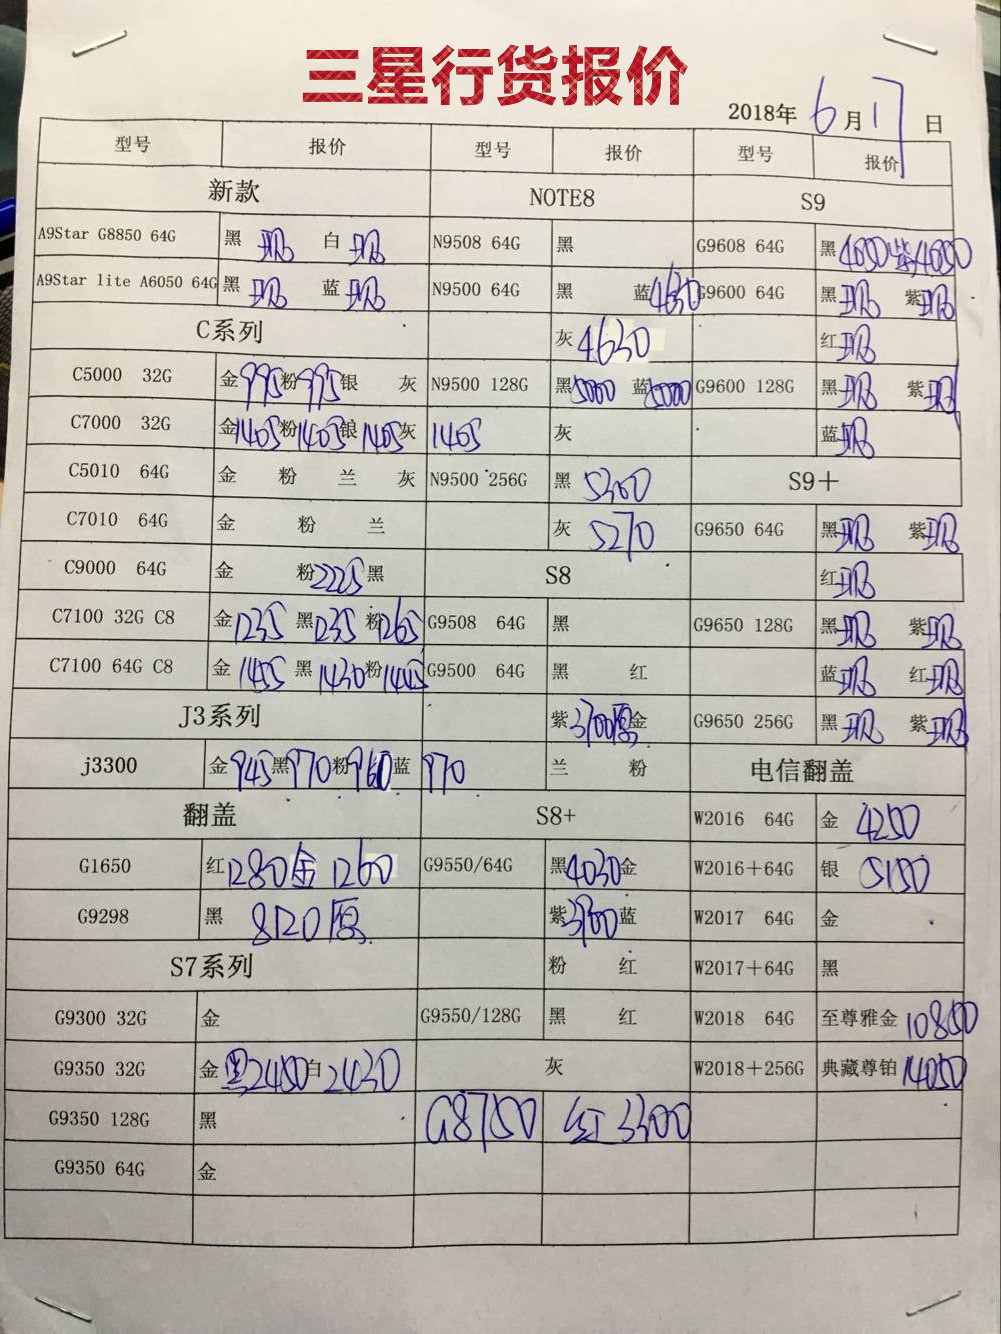 三星行货报价
2018年 6月17日
型号 报价 型号 报价 型号 报价
新款 NOTE8 S9
A9Star G8850 64G 黑 现 白 现 N9508 64G 黑 G9608 64G 黑 4050 紫 4050
A9Star lite A6050 64G 黑 现 蓝 现 N9500 64G 黑 蓝 4630 G9600 64G 黑 现 紫 现
C系列 灰 4630 红 现
C5000 32G 金 995 粉 995 银 灰 N9500 128G 黑 5000 蓝 5000 G9600 128G 黑 现 紫 现
C7000 32G 金 1405 粉 1405 银 1405 灰 1405 灰 蓝 现
C5010 64G 金 粉 兰 灰 N9500 256G 黑 5300 S9+
C7010 64G 金 粉 兰 灰 5270 G9650 64G 黑 现 紫 现
C9000 64G 金 粉 2225 黑 S8 红 现
C7100 32G C8 金 1235 黑 1235 粉 1265 G9508 64G 黑 G9650 128G 黑 现 紫 现
C7100 64G C8 金 1455 黑 1430 粉 1445 G9500 64G 黑 红 蓝 现 红 现
J3系列 紫 3700原 金 G9650 256G 黑 现 紫 现
j3300 金 945 黑 970 粉 960 蓝 970 兰 粉 电信翻盖
翻盖 S8+ W2016 64G 金 4250
G1650 红 1280 金 1260 G9550/64G 黑 4030 金 W2016+64G 银 5150
G9298 黑 8120原 紫 3900 蓝 W2017 64G 金
S7系列 粉 红 W2017+64G 黑
G9300 32G 金 G9550/128G 黑 红 W2018 64G 至尊雅金 10850
G9350 32G 金 黑 2450 白 2430 灰 W2018+256G 典藏尊铂 14050
G9350 128G 黑 G8750 红 3300
G9350 64G 金